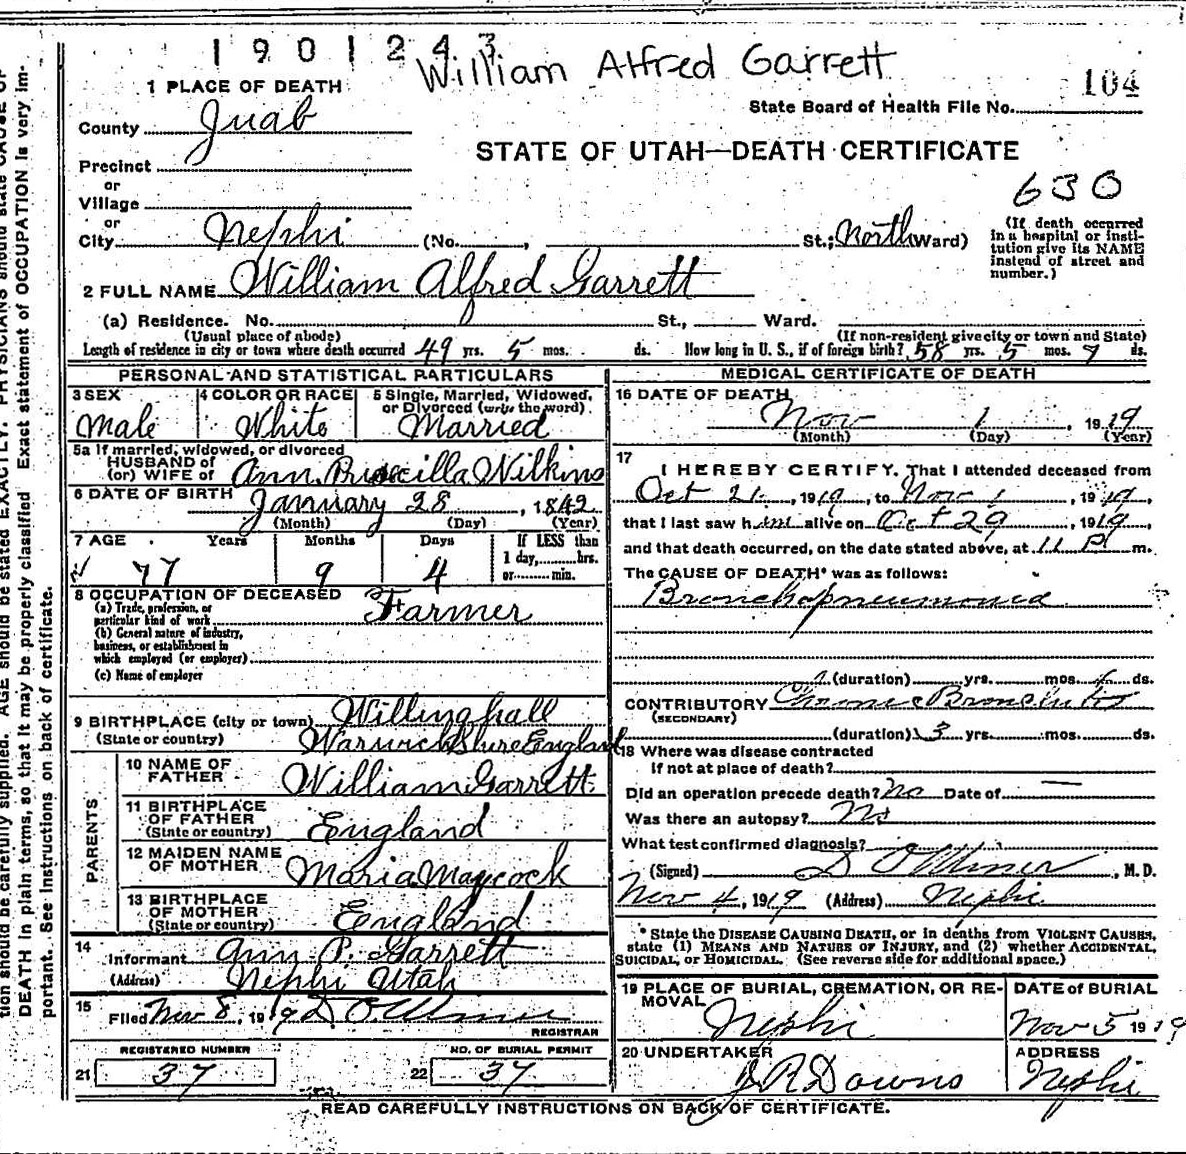 1901243
William Alfred Garrett
104
1 PLACE OF DEATH
State Board of Health File No.
County Juab
STATE OF UTAH—DEATH CERTIFICATE
Precinct
or
Village
630
or
City Nephi (No. , St.; North Ward)
(If death occurred in a hospital or insti-
tution give its NAME
instead of street and
number.)
2 FULL NAME William Alfred Garrett
(a) Residence. No. St., Ward.
(Usual place of abode) (If non-resident give city or town and State)
Length of residence in city or town where death occurred 49 yrs. 5 mos. ds. How long in U. S., if of foreign birth? 58 yrs. 5 mos. 9 ds.
PERSONAL AND STATISTICAL PARTICULARS
3 SEX 4 COLOR OR RACE 5 Single, Married, Widowed,
or Divorced (write the word)
Male White Married
5a If married, widowed, or divorced
HUSBAND of
(or) WIFE of Ann Priscilla Wilkins
6 DATE OF BIRTH January 28, 1842
(Month) (Day) (Year)
7 AGE Years Months Days If LESS than
1 day, hrs.
or min.
77 9 4
8 OCCUPATION OF DECEASED
(a) Trade, profession, or
particular kind of work Farmer
(b) General nature of industry,
business, or establishment in
which employed (or employer)
(c) Name of employer
9 BIRTHPLACE (city or town) Willinghall
(State or country) Warwickshire England
PARENTS
10 NAME OF
FATHER William Garrett
11 BIRTHPLACE
OF FATHER
(State or country) England
12 MAIDEN NAME
OF MOTHER Maria Maycock
13 BIRTHPLACE
OF MOTHER
(State or country) England
14
Informant Ann P. Garrett
(Address) Nephi Utah
15
Filed Nov 8, 1919
REGISTRAR
REGISTERED NUMBER NO. OF BURIAL PERMIT
21 37 22 37
MEDICAL CERTIFICATE OF DEATH
16 DATE OF DEATH
Nov 1 1919
(Month) (Day) (Year)
17
I HEREBY CERTIFY, That I attended deceased from
Oct 21, 1919, to Nov 1, 1919,
that I last saw him alive on Oct 29, 1919,
and that death occurred, on the date stated above, at 11 P m.
The CAUSE OF DEATH* was as follows:
Bronchopneumonia
(duration) yrs. mos. ds.
CONTRIBUTORY Chronic Bronchitis
(SECONDARY)
(duration) 3 yrs. mos. ds.
18 Where was disease contracted
If not at place of death?
Did an operation precede death? No Date of —
Was there an autopsy? No
What test confirmed diagnosis?
(Signed) , M. D.
Nov 4, 1919 (Address) Nephi
* State the DISEASE CAUSING DEATH, or in deaths from VIOLENT CAUSES,
state (1) MEANS AND NATURE OF INJURY, and (2) whether ACCIDENTAL,
SUICIDAL, or HOMICIDAL. (See reverse side for additional space.)
19 PLACE OF BURIAL, CREMATION, OR RE-
MOVAL DATE of BURIAL
Nephi Nov 5 1919
20 UNDERTAKER ADDRESS
J R Downs Nephi
READ CAREFULLY INSTRUCTIONS ON BACK OF CERTIFICATE.
tion should be carefully supplied. AGE should be stated EXACTLY. PHYSICIANS should state CAUSE OF
DEATH in plain terms, so that it may be properly classified. Exact statement of OCCUPATION is very im-
portant. See instructions on back of certificate.